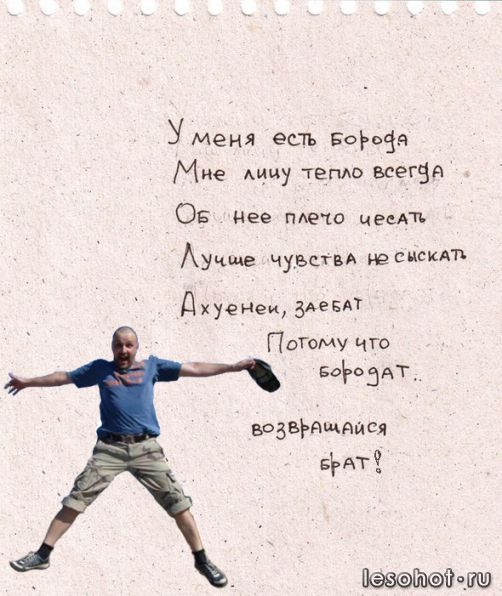 У меня есть борода
Мне лицу тепло всегда
Об нее плечо чесать
Лучше чувства не сыскать
Ахуенен, заебат
Потому что
бородат..
возвращайся
брат!
lesohot.ru